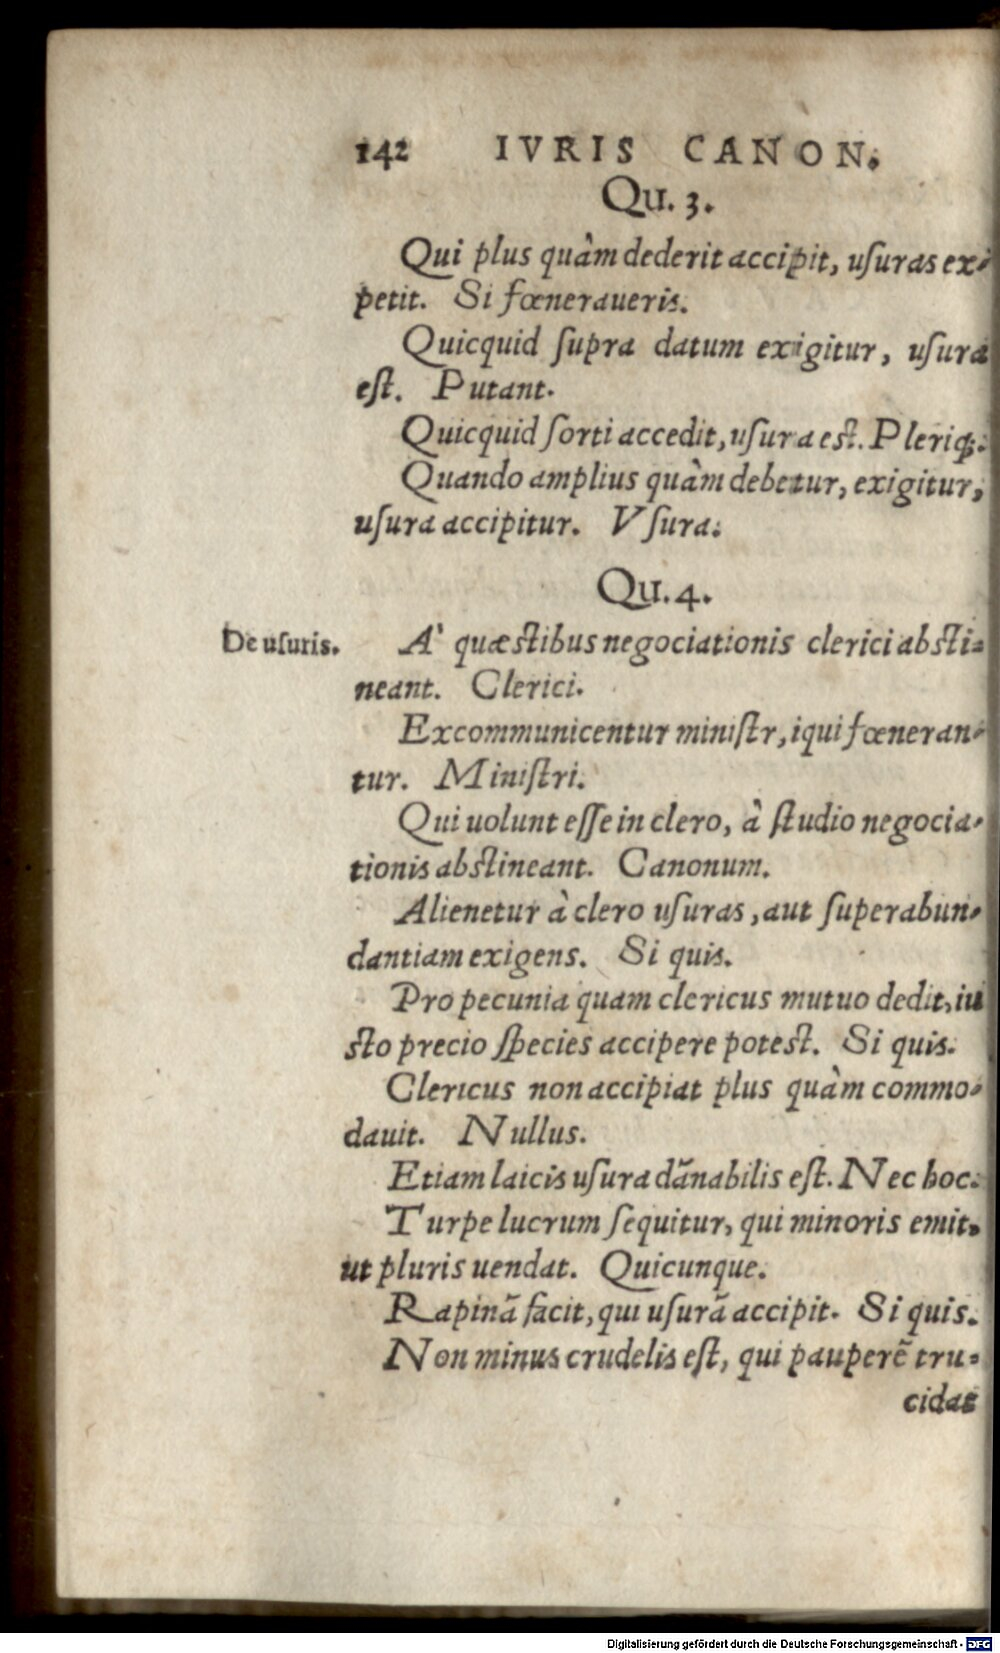 142 IVRIS CANON.
Qu. 3.
Qui plus quàm dederit accipit, uſuras ex-
petit. Si fœneraueris.
Quicquid ſupra datum exigitur, uſura
eſt. Putant.
Quicquid ſorti accedit, uſura eſt. Pleriq;.
Quando amplius quàm debetur, exigitur,
uſura accipitur. Vſura.
Qu. 4.
De uſuris.
A' quæſtibus negociationis clerici abſti-
neant. Clerici.
Excommunicentur miniſtr, iqui fœneran-
tur. Miniſtri.
Qui uolunt eſſe in clero, à ſtudio negocia-
tionis abſtineant. Canonum.
Alienetur à clero uſuras, aut ſuperabun-
dantiam exigens. Si quis.
Pro pecunia quam clericus mutuo dedit, iu
ſto precio ſpecies accipere poteſt. Si quis.
Clericus non accipiat plus quàm commo-
dauit. Nullus.
Etiam laicis uſura dãnabilis eſt. Nec hoc.
Turpe lucrum ſequitur, qui minoris emit,
ut pluris uendat. Quicunque.
Rapinã facit, qui uſurã accipit. Si quis.
Non minus crudelis eſt, qui pauperẽ tru-
cidat
Digitalisierung gefördert durch die Deutsche Forschungsgemeinschaft - DFG